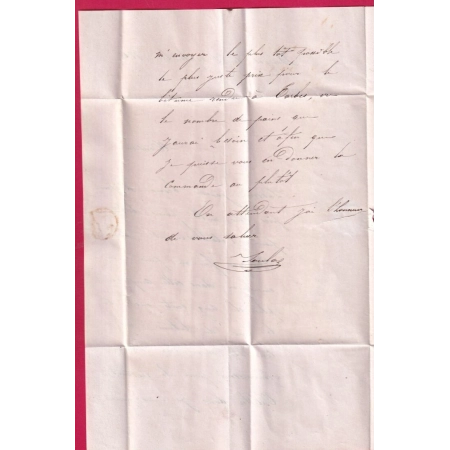 m'envoyer le plus tôt possible
le plus juste prix pour le
bitume rendu à Tarbes, ou
le nombre de pains que
j'aurai besoin et afin que
je puisse vous en donner la
commande au plutôt
En attendant j'ai l'honneur
de vous saluer